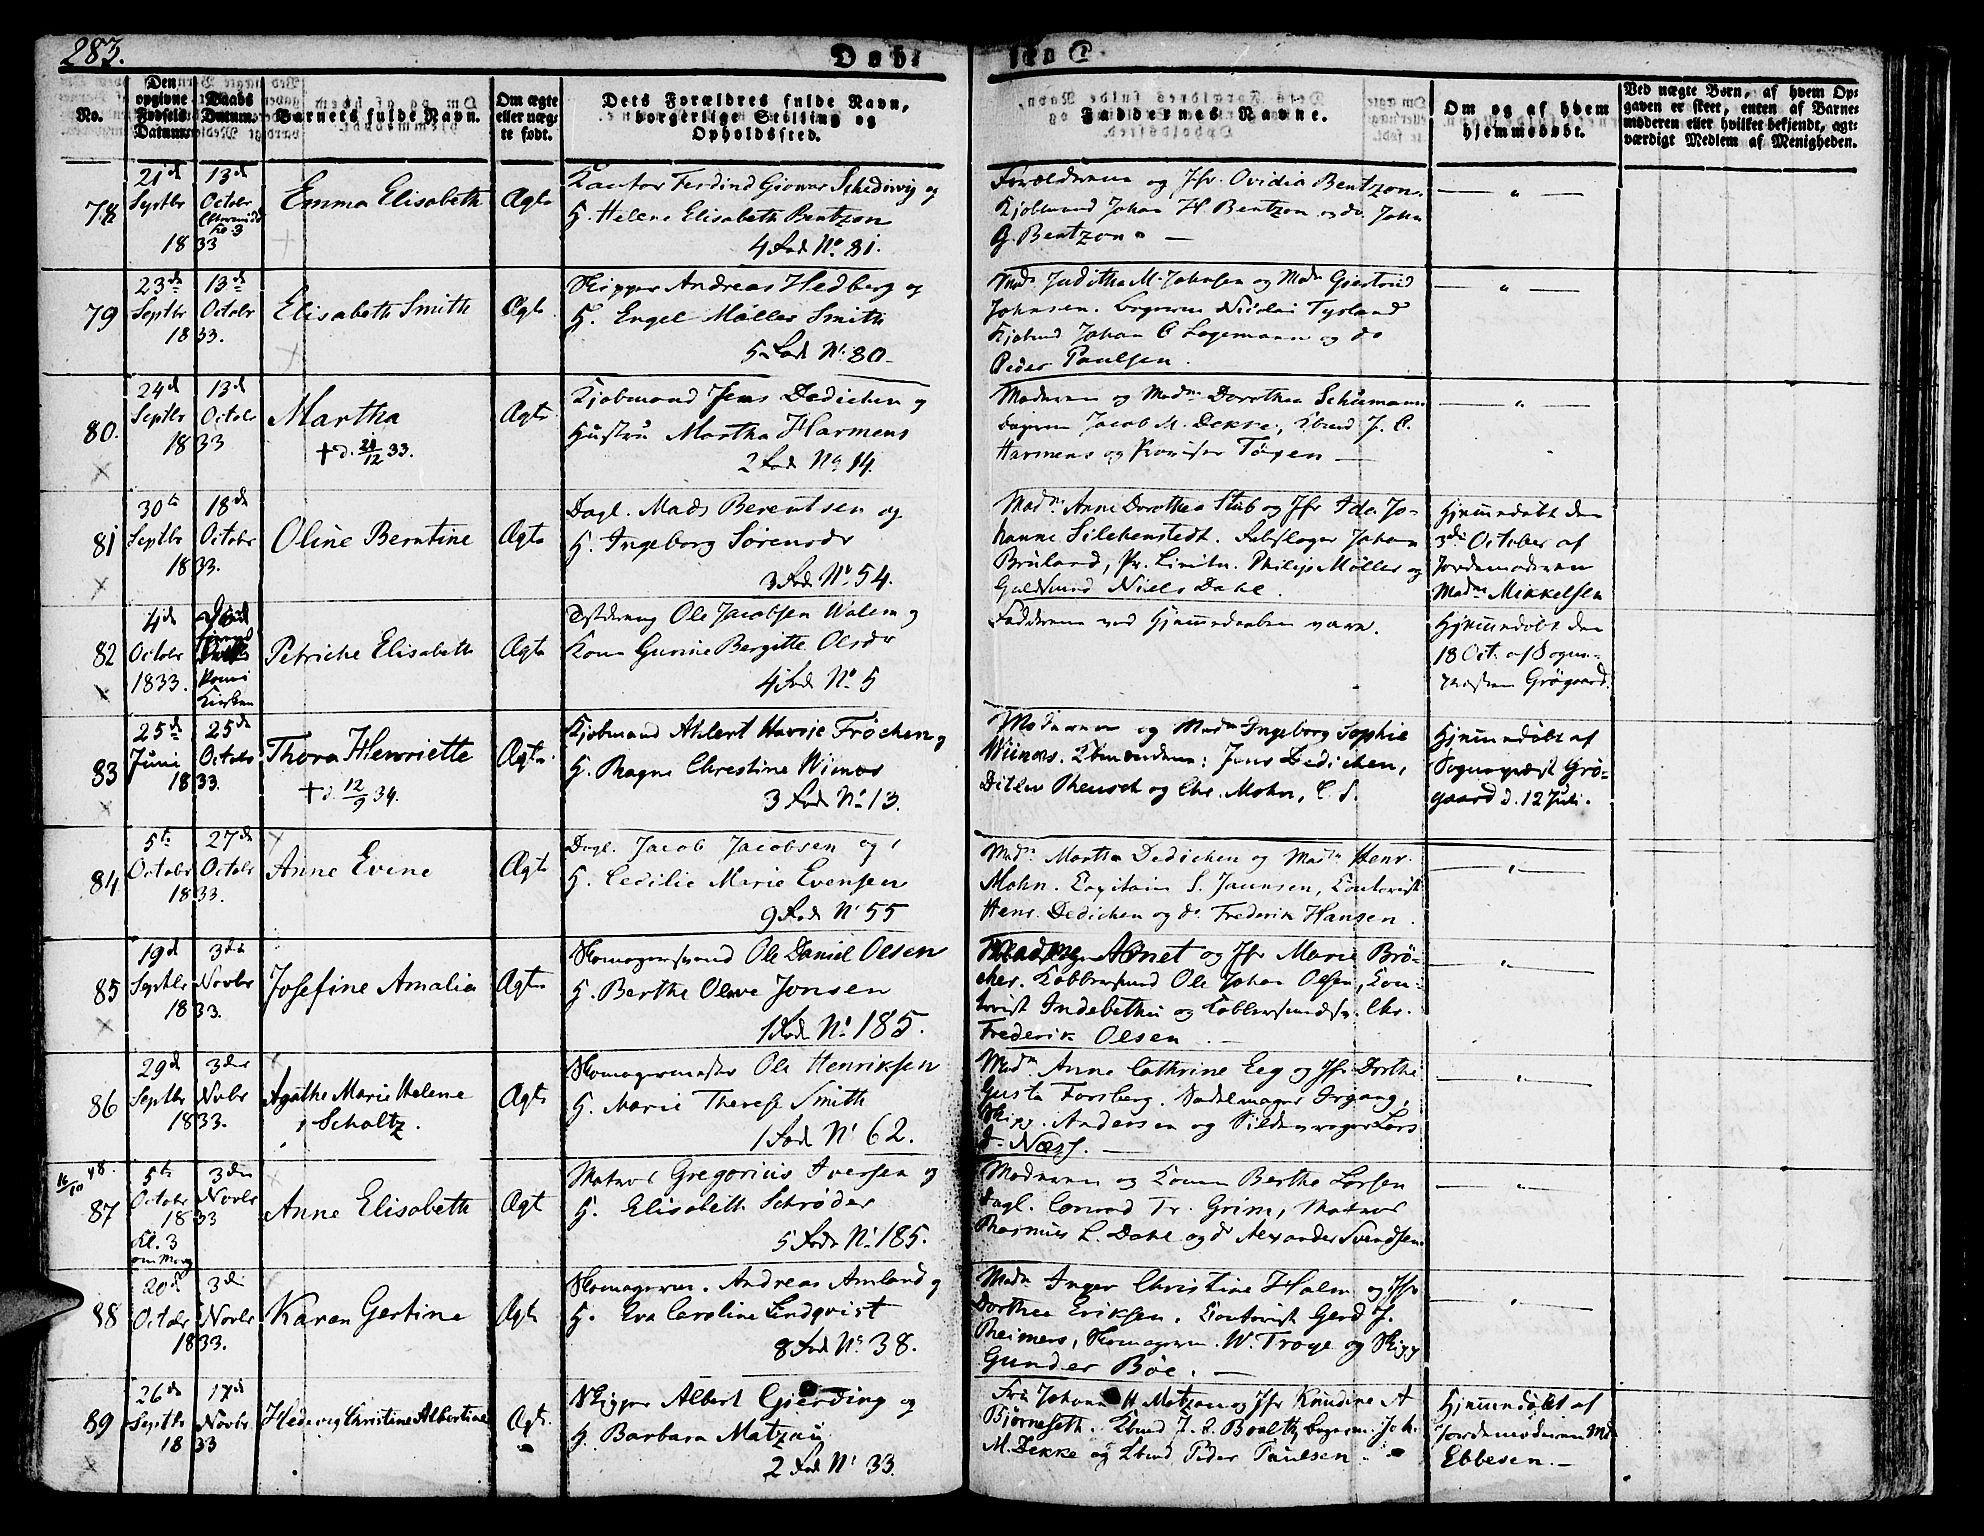 283.
Døbte
No.
Den opgivne Fødsels Datum.
Daabs Datum.
Barnets fulde Navn.
Om ægte eller uægte født.
Dets Forældres fulde Navn, borgerlige Stilling og Opholdssted.
Faddernes Navne.
Om og af hvem hjemmedøbt.
Ved uægte Børn, af hvem Opgaven er skeet, enten af Barnemoderen eller hvilket bekjendt, agtværdigt Medlem af Menigheden.
78
21de Septbr
13de Octobr
1833
Emma Elisabeth
Ægte
Kantor Ferdind Giovar Schediwy og
H. Helene Elisabeth Bentzon
4 Rode No. 81.
Forældrene og Jfr. Ovidia Bentzon.
Kjøbmand Johan H. Bentzon og do John
G. Bentzon
79
23de Septbr
13de Octobr
1833.
Elisabeth Smith
Ægte
Skipper Andreas Hedberg og
H. Engel Møller Smith
5 Rode No. 80
Mad. Juditha M. Johnsen og Mad. Giertrud
Johnsen. Nicolai Tysland
Kjøbmd Johan C Lagemann og do
Peder Paulsen.
80.
24de Septbr
13de Octobr
1833
Martha
† d. 21/12 33.
Ægte
Kjøbmand Jens Dedichen og
Hustru Martha Harmens
2 Rode No. 14.
Moderen og Mad. Dorothea Schumann
Jacob M. Dekke, Kbmd J. C.
Harmens og
81
30te Septbr
18de Octobr
1833.
Oline Berntine
Ægte
Dagl. Mads Berentsen og
H. Ingeborg Sørensdr
3 Rode No. 54.
Mad. Anne Dorothea Stub og Jfr Ida Johanne
Silchenstedt. Johan
Bruland, Pr. Philip Møller og
Niels Dahl.
Hjemmedøbt den
3de October af
Jordemoderen
Mad. Mikkelsen
82
4de October
1833.
Petriche Elisabeth
Ægte
Ole Jacobsen Walem og
Kone Gurine Bergitte Olsdr
4 Rode No. 5
Fadderne ved Hjemmedaaben vare.
Hjemmedøbt den
18 Oct. af Sogne-
præsten Grøgaard.
83
25de Juni
25de Octobr
1833.
Thora Henriette
† d. 12/9 34.
Ægte
Kjøbmand Ahlert Harvie Frøchen og
H. Ragne Christine Wimas
3 Rode No. 13.
Moderen og Mad. Ingeborg Sophie
Kbmændene: Jens Dedichen,
Ditlev Rensch og Chr. Mohn, C. S.
Hjemmedøbt af
Sognepræst Grø-
gaard d. 12 Juli.
84
5te October
27de Octobr
1833.
Anne Evine
Ægte
Dagl. Jacob Jacobsen og
H. Cecilie Marie Evensen
9 Rode No 55
Mad. Martha Dedichen og Mad. Henr.
Mohn. Capitain S. Jaunsen, Contorist
Henr. Dedichen og do Frederik Hansen.
85
19de Septbr
3die Novbr
1833.
Josefine Amalia
Ægte
Skomagersvend Ole Daniel Olsen
H. Berthe Olave Jonsen
1 Rode No. 185.
Madme Arnet og Jfr Marie Brø-
cher. Kobbersmed Ole Johan Olsen, Con-
torist Indebethu og Kobbersmedsv. Chr.
Frederik Olsen
86
29de Septbr
3die Novbr
1833.
Agathe Marie Helene
Scholtz.
Ægte
Skomagermester Ole Henriksen
H. Marie Therese Smith
1 Rode No 62.
Mad. Anne Cathrine Eeg og Jfr Dorthe
Gusta Forsberg. Sadelmager Irgang,
Skip. Andersen og Sildevrager Lars
d. Næss.
16/10 48.
87
5te October
3die Novbr
1833
Kl. 3
om Morg
Anne Elisabeth
Ægt
Matros Gregorius Iversen og
H. Elisabeth Schrøder
5 Rode No. 185.
Moderen og Konen Berthe Larsen
Dagl. Conrad Tr. Grim, Matros
Rasmus L. Dahl og do Alexander Svendsen
88
20de October
3die Novbr
1833.
Karen Gertine
Ægte
Skomagersv. Andreas Amland og
H. Eva Caroline Lindqvist
8 Rode No. 38.
Mad. Inger Christine Holm og Jfr
Dorthea Eriksen. Contorist Gerd J.
Reimers, Skomagersv. W. Troye og Skipp
Gunder Bøe.
89
26de Septbr
17de Novbr
1833
Hedevig Christine Albertine
Ægte
Skipper Albert Gjerding og
H. Barbara Matzau
2 Rode No 33.
Fru Johan H Matzau og Jfr Knudine A
Bjørneseth. Kbmd J. C. Boalth, Joh.
M. Dekke og Kbmd Peder Paulsen.
Hjemmedøbt af
Jordemoderen Md
Ebbesen.